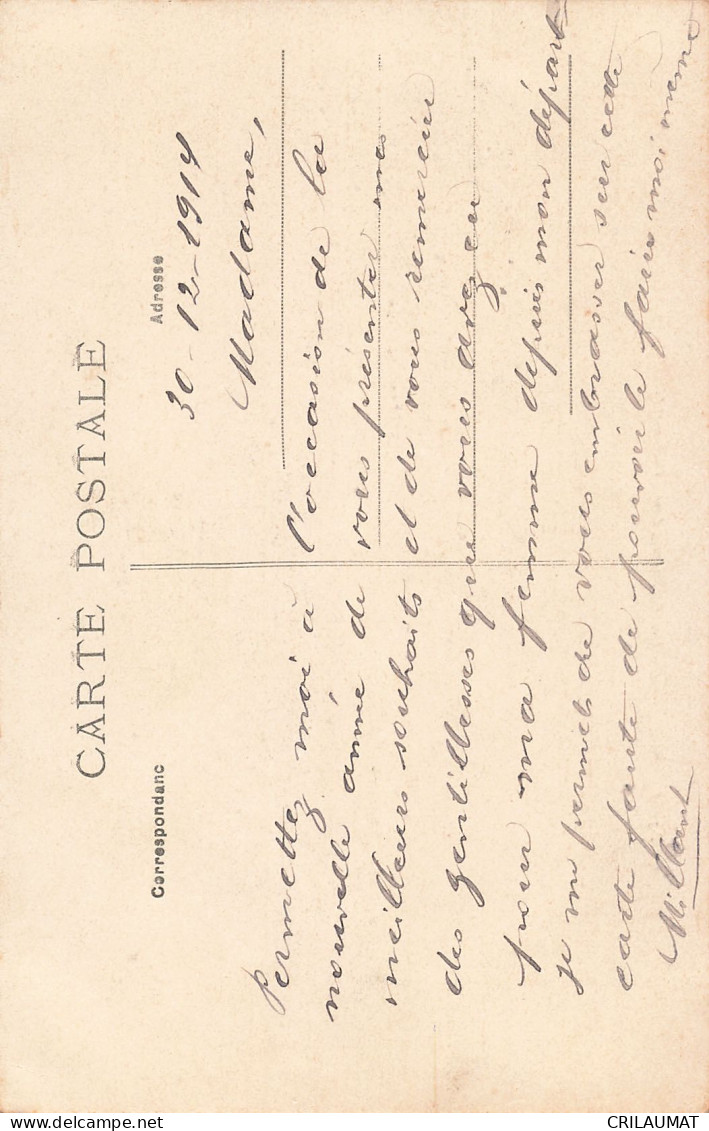 CARTE POSTALE
Correspondanc
Adresse
30-12-1914
Madame,
Permettez moi à l'occasion de la
nouvelle année de vous présenter mes
meilleurs souhaits et de vous remercier
des gentillesses que vous avez eu
pour ma femme depuis mon départ
je me permets de vous embrasser sur cette
carte faute de pouvoir le faire moi même
CRILAUMAT